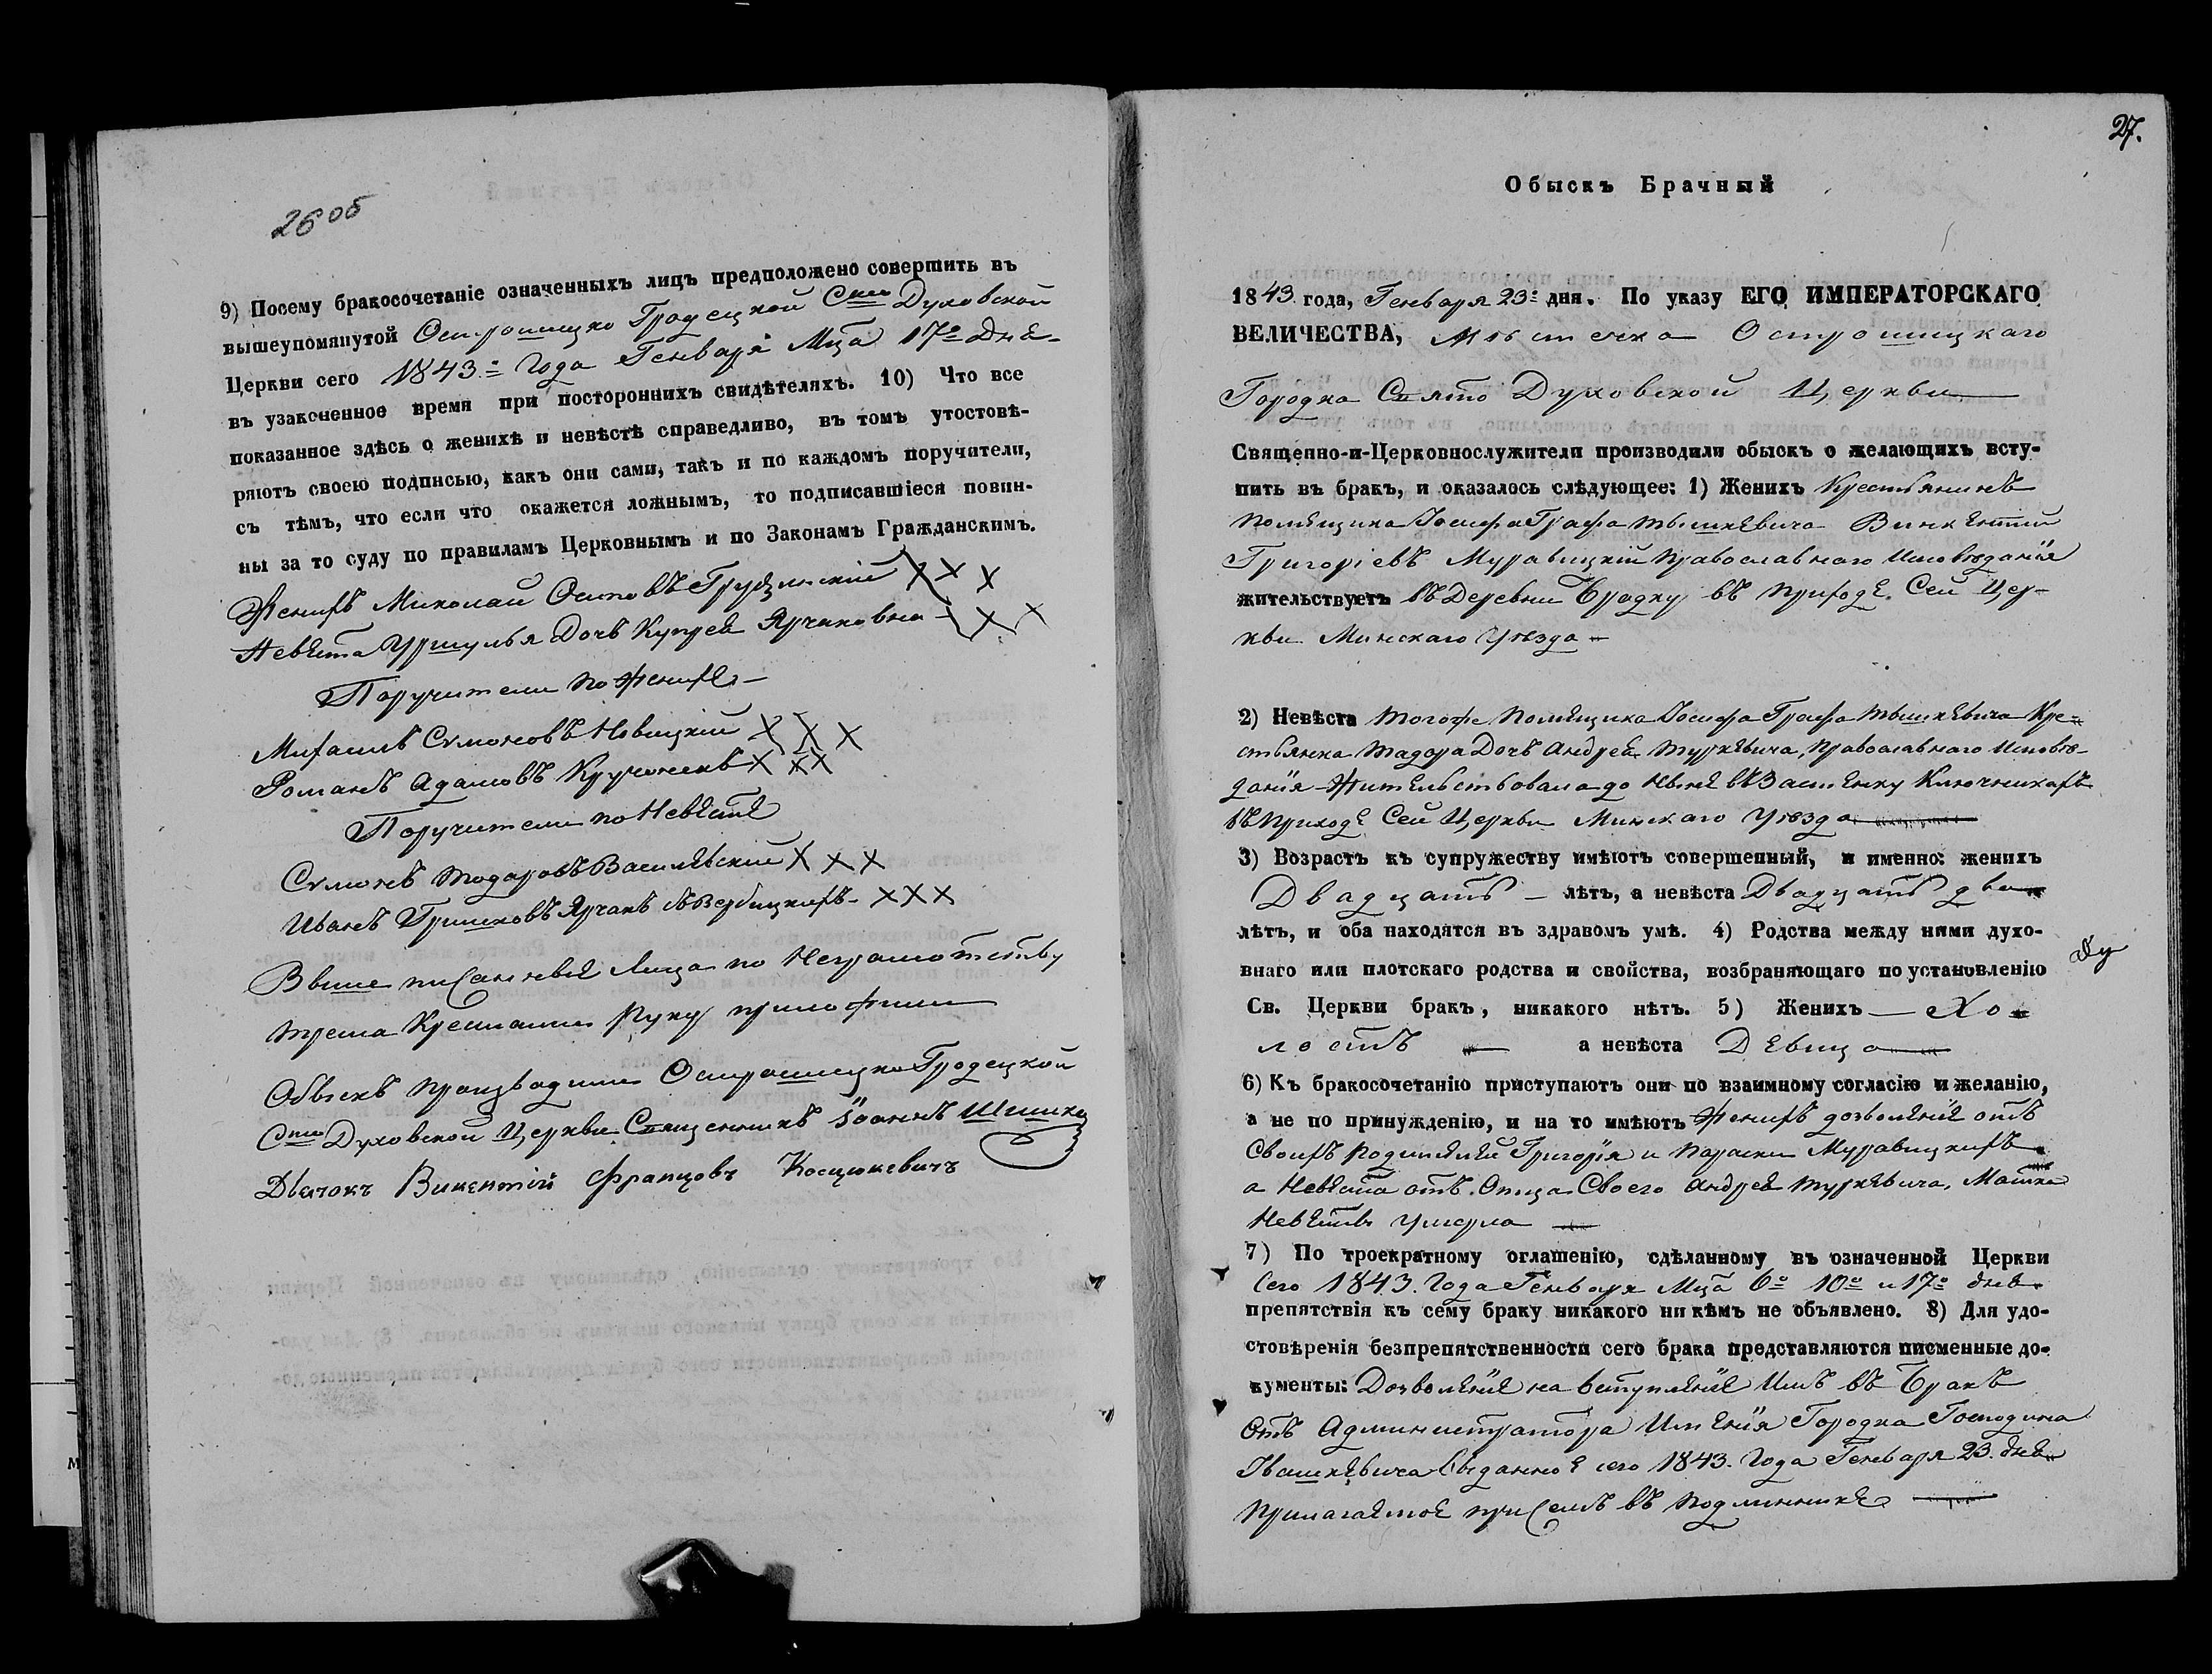 26 об
9) Посему бракосочетаніе означенныхъ лицъ предположено совершить въ
вышеупомянутой Острошицко Градецкой Сто Духовской
Церкви сего 1843го Года Генваря Мца 17го Дня
въ узаконенное время при постороннихъ свидѣтеляхъ. 10) Что все
показанное здѣсь о женихѣ и невѣстѣ справедливо, въ томъ утостовѣ-
ряютъ своею подписью, какъ они сами, такъ и по каждомъ поручители,
съ тѣмъ, что если что окажется ложнымъ, то подписавшіеся повин-
ны за то суду по правиламъ Церковнымъ и по Законамъ Гражданскимъ.
Женихъ Миколай Осиповъ Грузинскій X X X
Невѣста Уршулья Дочь Купрея Ярчаковна X X X
Поручители по Женихѣ
Михаилъ Сymоновъ Новицкій X X X
Романъ Адамовъ Кручонекъ X X X
Поручители по Невѣстѣ
Сymонъ Тодоровъ Василевскій X X X
Иванъ Гришковъ Ярчакъ X X X
Выше писанные Лица по Неграмотству
трема Крестами Руку приложили
Обыскъ производили Острошицко Гродецкой
Сто Духовской Церкви Священникъ Іоаннъ
Дьячокъ Викентій Францовъ Косцюкевичъ
27.
Обыскъ Брачный
1843 года, Генваря 23го дня. По указу ЕГО ИМПЕРАТОРСКАГО
ВЕЛИЧЕСТВА, Мѣстечка Острошицкаго
Городка Святo Духовской Церкви
Священно-и-Церковнослужители производили обыскъ о желающихъ всту-
пить въ бракъ, и оказалось слѣдующее: 1) Женихъ Крестьянинъ
помѣщика Іосифа Графа Тышкевича Винкентій
Григоріевъ Муравицкій Православнаго Исповѣданія
жительствуетъ въ Деревни Бродку въ приходѣ Сей Цер-
кви Минскаго Уѣзда
2) Невѣста тогоже Помѣщика Іосифа Графа Тышкевича Кре-
стьянка Тадора Дочь Андрея Туркевича, Православнаго Исповѣ-
данія Жительствовала до нынѣ въ Застѣнку Ключникахъ
въ приходѣ Сей Церкви Минскаго Уѣзда
3) Возрастъ къ супружеству имѣютъ совершенный, и именно: женихъ
Двадцать лѣтъ, а невѣста Двадцать два
лѣтъ, и оба находятся въ здравомъ умѣ. 4) Родства между ними духо-
внаго или плотскаго родства и свойства, возбраняющаго по установленію
Ду
Св. Церкви бракъ, никакого нѣтъ. 5) Женихъ Хо-
лостъ а невѣста Девица
6) Къ бракосочетанію приступаютъ они по взаимному согласію и желанію,
а не по принужденію, и на то имѣютъ Женихъ дозволеніе отъ
Своихъ родителей Григорія и Параски Муравицкихъ
а Невѣста отъ Отца Своего Андрея Туркевича, Матка
Невѣсты умерла
7) По троекратному оглашенію, сдѣланному въ означенной Церкви
Сего 1843 Года Генваря Мца 6го 10го и 17го дня
препятствія къ сему браку никакого ни кѣмъ не объявлено. 8) Для удо-
стовѣренія безпрепятственности сего брака представляются писменные до-
кументы: Дозволеніе на вступленіе Имъ въ Бракъ
Отъ Администратора Имѣнія Городка Господина
Ивашкевича выданное сего 1843 Года Генваря 23 дня
Прилагаемое при семъ въ подлинникѣ